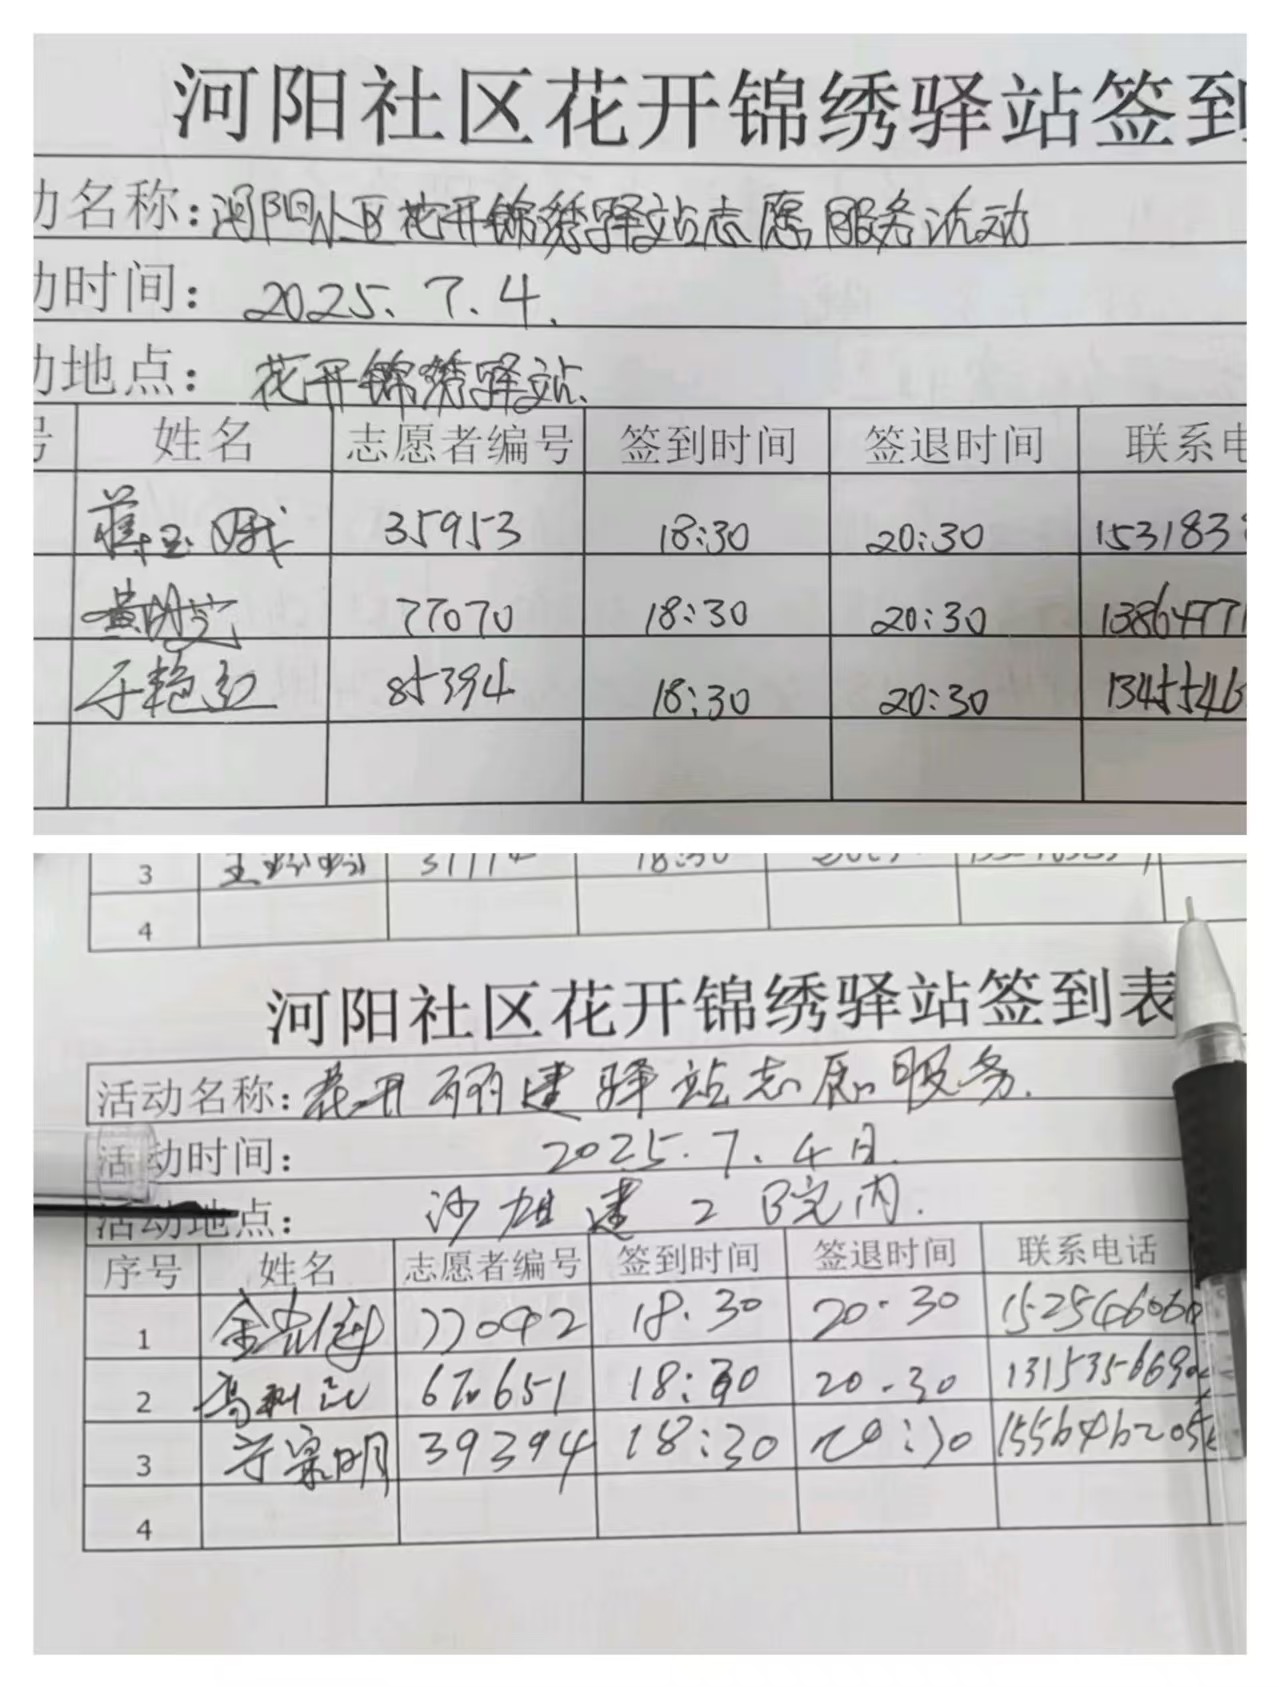 河阳社区花开锦绣驿站签到
动名称：河阳社区花开锦绣驿站志愿服务活动
动时间：2025.7.4.
动地点：花开锦绣驿站.
号 姓名 志愿者编号 签到时间 签退时间 联系电
蒋玉娥 35953 18:30 20:30 1531833
黄明芝 77070 18:30 20:30 13864771
于艳红 85394 18:30 20:30 1345546
3 王 18:30
4
河阳社区花开锦绣驿站签到表
活动名称：花开丽建驿站志愿服务.
活动时间： 2025.7.4日.
活动地点： 沙 建2 院内.
序号 姓名 志愿者编号 签到时间 签退时间 联系电话
1 77042 18.30 20.30 1525460
2 18:30 20.30 1315356690
3 于宗明 39394 18:30 20:30 155646205
4